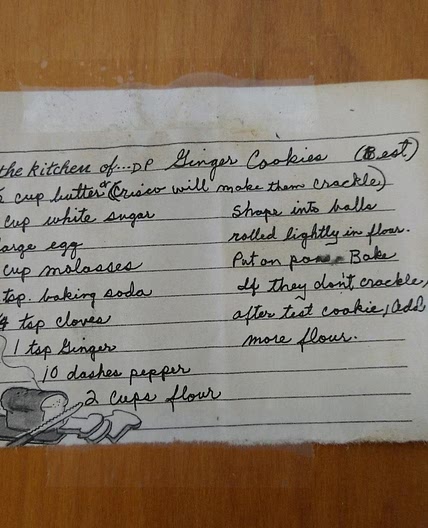 the kitchen of...DP Ginger Cookies (Best)
cup butter or (Crisco will make them crackle)
cup white sugar
large egg
cup molasses
tsp. baking soda
tsp cloves
1 tsp Ginger
10 dashes pepper
2 cups flour
Shape into balls
rolled lightly in flour.
Put on Bake
If they don't crackle,
after test cookie, Add
more flour.